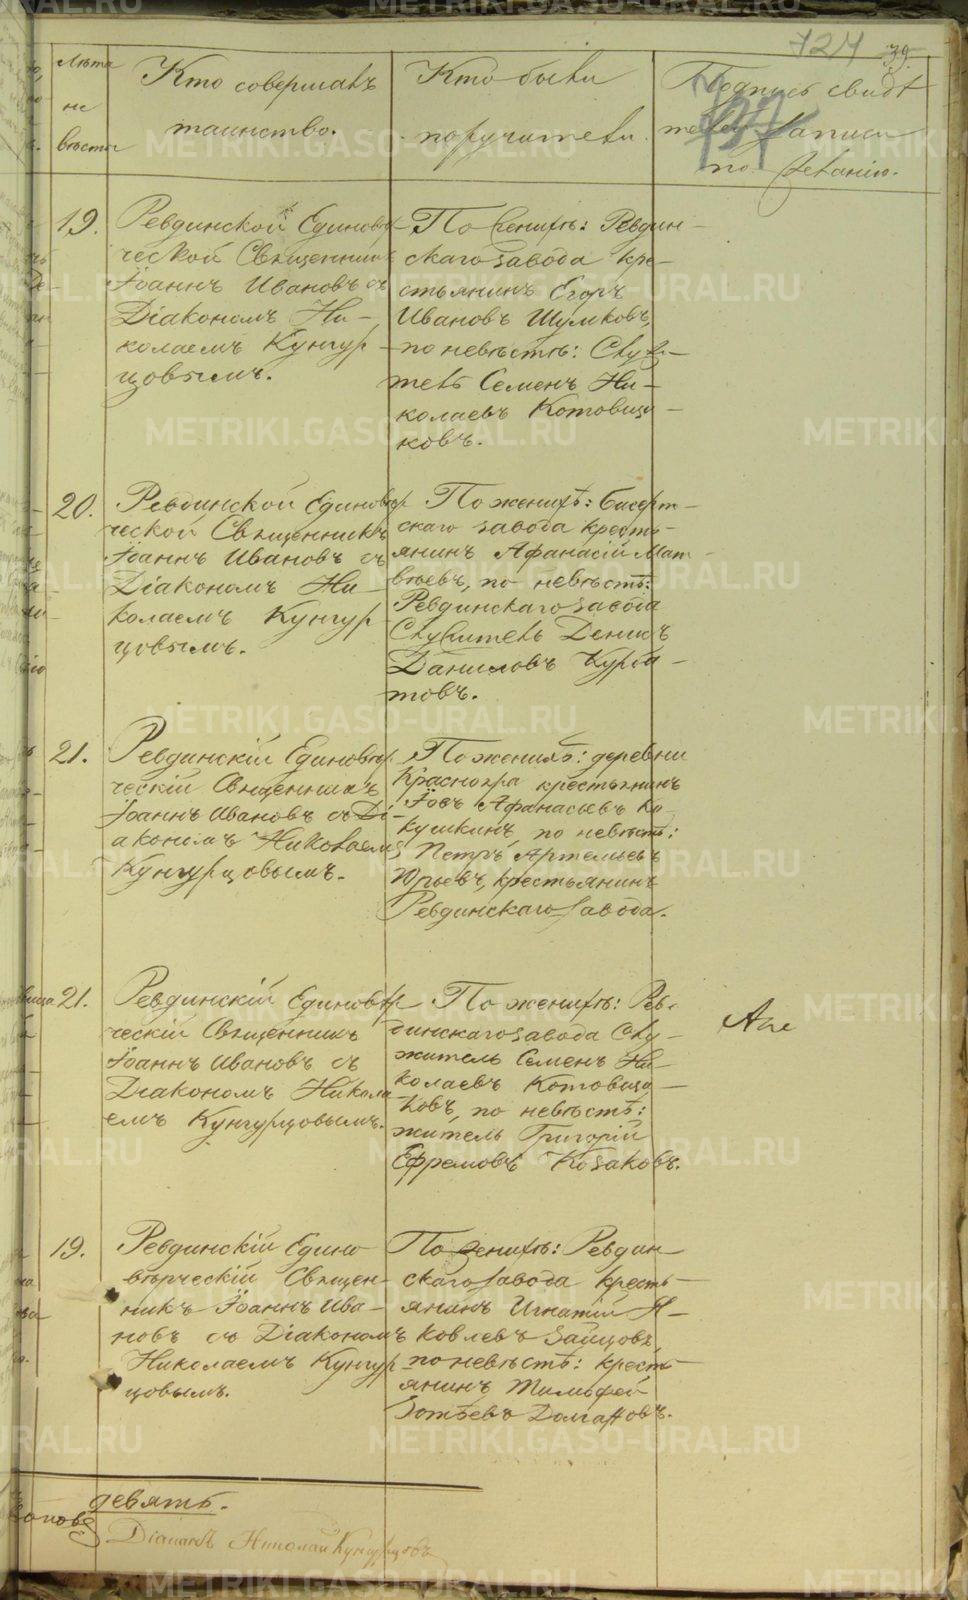 724
39.
Лѣта
не
вѣсты
Кто совершалъ
таинство.
Кто были
поручители.
Подпись свидѣ
телей записи
по желанію.
19.
Ревдинской Единовѣр
ческой Священникъ
Іоаннъ Ивановъ съ
Діакономъ Ни-
колаемъ Кунгур-
цовымъ.
По женихѣ: Ревдин-
скаго завода кре-
стьянинъ Егоръ
Ивановъ Шумковъ,
по невѣстѣ: Служи-
тель Семенъ Ни-
колаевъ Котовщи-
ковъ.
20.
Ревдинской Единовѣр
ческой Священникъ
Іоаннъ Ивановъ съ
Діакономъ Ни-
колаемъ Кунгур-
цовымъ.
По женихѣ: Бисерт-
скаго завода кресть-
янинъ Афанасій Мат-
вѣевъ, по невѣстѣ:
Ревдинскаго завода
Служитель Денисъ
Даниловъ Курба-
товъ.
21.
Ревдинскій Единовѣр
ческій Священникъ
Іоаннъ Ивановъ съ Ді-
акономъ Николаемъ
Кунгурцовымъ.
По женихѣ: деревни
Краснояра крестьянинъ
Іовъ Афанасьевъ Ко-
кушкинъ, по невѣстѣ:
Петръ Артемьевъ
Юрьевъ, крестьянинъ
Ревдинскаго завода.
21.
Ревдинскій Единовѣр
ческій Священникъ
Іоаннъ Ивановъ съ
Діакономъ Никола-
емъ Кунгурцовымъ.
По женихѣ: Рев-
динскаго завода Слу-
житель Семенъ Ни-
колаевъ Котовщи-
ковъ, по невѣстѣ:
житель Григорій
Ефремовъ Козаковъ.
19.
Ревдинскій Едино-
вѣрческій Священ-
никъ Іоаннъ Ива-
новъ съ Діакономъ
Николаемъ Кунгур-
цовымъ.
По женихѣ: Ревдин-
скаго завода кресть-
янинъ Игнатій Я-
ковлевъ Зайцовъ,
по невѣстѣ: кресть-
янинъ Тимофей
Зотѣевъ Долгановъ.
девять.
Діаконъ Николай Кунгурцовъ
METRIKI.GASO-URAL.RU